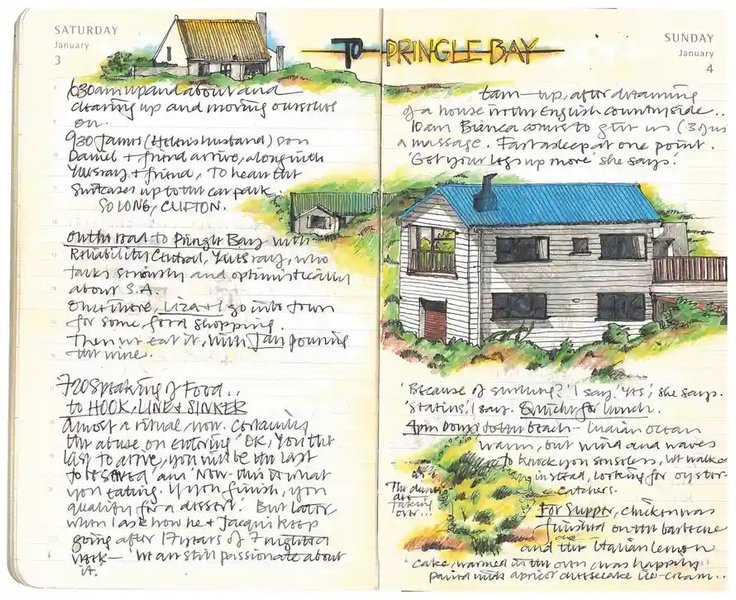 SATURDAY
January
3
TO PRINGLE BAY
SUNDAY
January
4
630am up and about and
clearing up and moving ourselves
on.
930 James (Helen's husband) son
Daniel + friend arrive, along with
+ friend, to heave the
suitcases up to the car park.
SO LONG, CLIFTON.
on the road to Pringle Bay with
Reliability Central, who
talks seriously and optimistically
about S.A.
Once there, Liza + I go into town
for some food shopping.
Then we eat it, with Jan pouring
the wine.
720 Speaking of Food..
to HOOK, LINE & SINKER
almost a ritual now. Containing
the abuse on entering 'OK, You the
last to arrive, you will be the last
to be served and Now this is what
you eating. If you finish, you
qualify for a dessert.' But later
when I ask how he + Jacqui keep
going after 17 years of 7 nights a
week — we are still passionate about
it.
7am — up, after dreaming
of a house in the English countryside..
10am Bianca comes to give us (3 of us)
a massage. Fast asleep at one point.
'Get your legs up more' she says.
'Because of surfing?' I say. 'Yes', she says.
'Statins', I say. Quiche for lunch.
4pm Down to the beach — Indian Ocean
warm, but wind and waves
to knock you senseless, we walked
instead, looking for oyster-
catchers.
The dunes
are
taking
over...
For Supper, chicken was
finished on the barbecue
and the Italian lemon
cake, warmed in the oven was happily
paired with apricot cheesecake ice-cream..